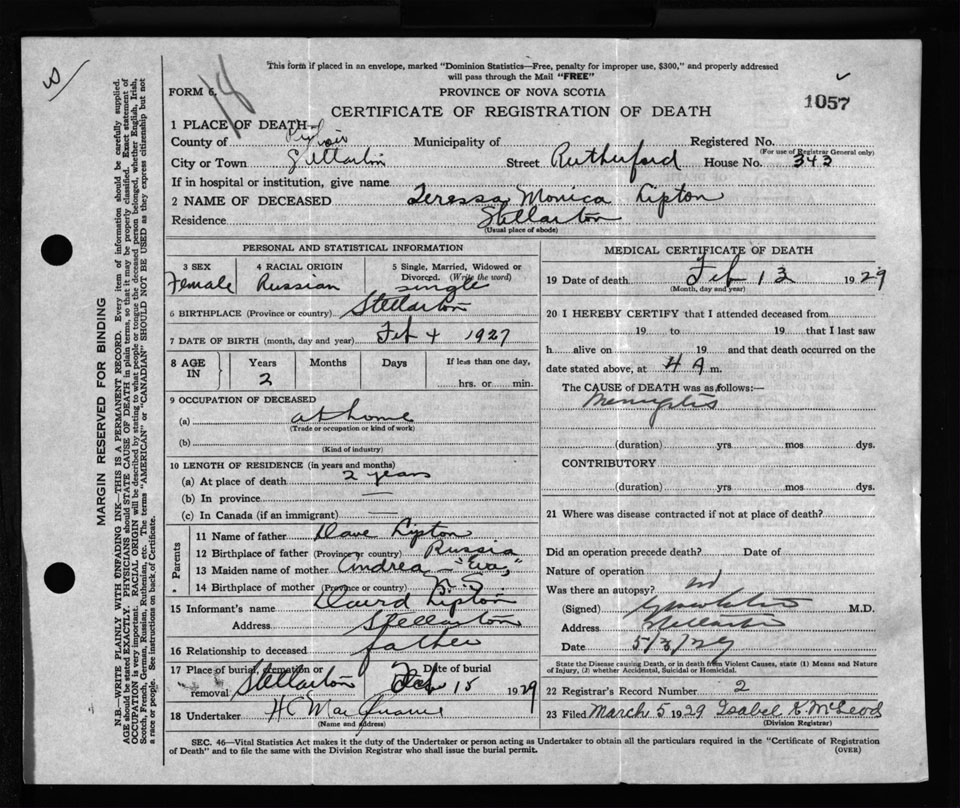 This form if placed in an envelope, marked "Dominion Statistics—Free, penalty for improper use, $300," and properly addressed
will pass through the Mail "FREE"
FORM 6.
PROVINCE OF NOVA SCOTIA
1057
CERTIFICATE OF REGISTRATION OF DEATH
1 PLACE OF DEATH—
County of Pictou Municipality of Registered No.
(For use of Registrar General only)
City or Town Stellarton Street Rutherford House No. 343
If in hospital or institution, give name
2 NAME OF DECEASED Teressa Monica Lipton
Residence Stellarton
(Usual place of abode)
PERSONAL AND STATISTICAL INFORMATION
3 SEX 4 RACIAL ORIGIN 5 Single, Married, Widowed or
Divorced. (Write the word)
Female Russian single
6 BIRTHPLACE (Province or country) Stellarton
7 DATE OF BIRTH (month, day and year) Feb 4 1927
8 AGE IN Years Months Days If less than one day,
2 hrs. or min.
9 OCCUPATION OF DECEASED
(a) at home
(Trade or occupation or kind of work)
(b)
(Kind of industry)
10 LENGTH OF RESIDENCE (in years and months)
(a) At place of death 2 years
(b) In province —
(c) In Canada (if an immigrant) —
Parents
11 Name of father Dave Lipton
12 Birthplace of father (Province or country) Russia
13 Maiden name of mother Andrea - "Eva,"
14 Birthplace of mother (Province or country) N.S.
15 Informant's name David Lipton
Address Stellarton
16 Relationship to deceased father
17 Place of burial, cremation or Date of burial
removal Stellarton Feb 15 1929
18 Undertaker H C Mac Quarrie
(Name and address)
MEDICAL CERTIFICATE OF DEATH
19 Date of death Feb 13 1929
(Month, day and year)
20 I HEREBY CERTIFY that I attended deceased from
19 to 19 that I last saw
h alive on 19 and that death occurred on the
date stated above, at 4 A m.
The CAUSE of DEATH was as follows:—
(duration) yrs mos dys.
CONTRIBUTORY
(duration) yrs mos dys.
21 Where was disease contracted if not at place of death?
Did an operation precede death? Date of
Nature of operation
Was there an autopsy? no
(Signed) M.D.
Address Stellarton
Date 5/3/29
State the Disease causing Death, or in death from Violent Causes, state (1) Means and Nature
of Injury, (2) whether Accidental, Suicidal or Homicidal.
22 Registrar's Record Number 2
23 Filed March 5 1929 Isabel K. McLeod
(Division Registrar)
SEC. 46—Vital Statistics Act makes it the duty of the Undertaker or person acting as Undertaker to obtain all the particulars required in the "Certificate of Registration
of Death" and to file the same with the Division Registrar who shall issue the burial permit.
(OVER)
MARGIN RESERVED FOR BINDING
N.B.—WRITE PLAINLY WITH UNFADING INK—THIS IS A PERMANENT RECORD. Every item of information should be carefully supplied.
AGE should be stated EXACTLY. PHYSICIANS should STATE CAUSE OF DEATH in plain terms, so that it may be properly classified. Exact statement of
OCCUPATION is very important. RACIAL ORIGIN will be described by stating to what people or tongue the deceased person belonged, whether English, Irish,
Scotch, French, German, Russian, Ruthenian, etc. The terms "AMERICAN" or "CANADIAN" SHOULD NOT BE USED as they express citizenship but not
a race or people. See instructions on back of Certificate.